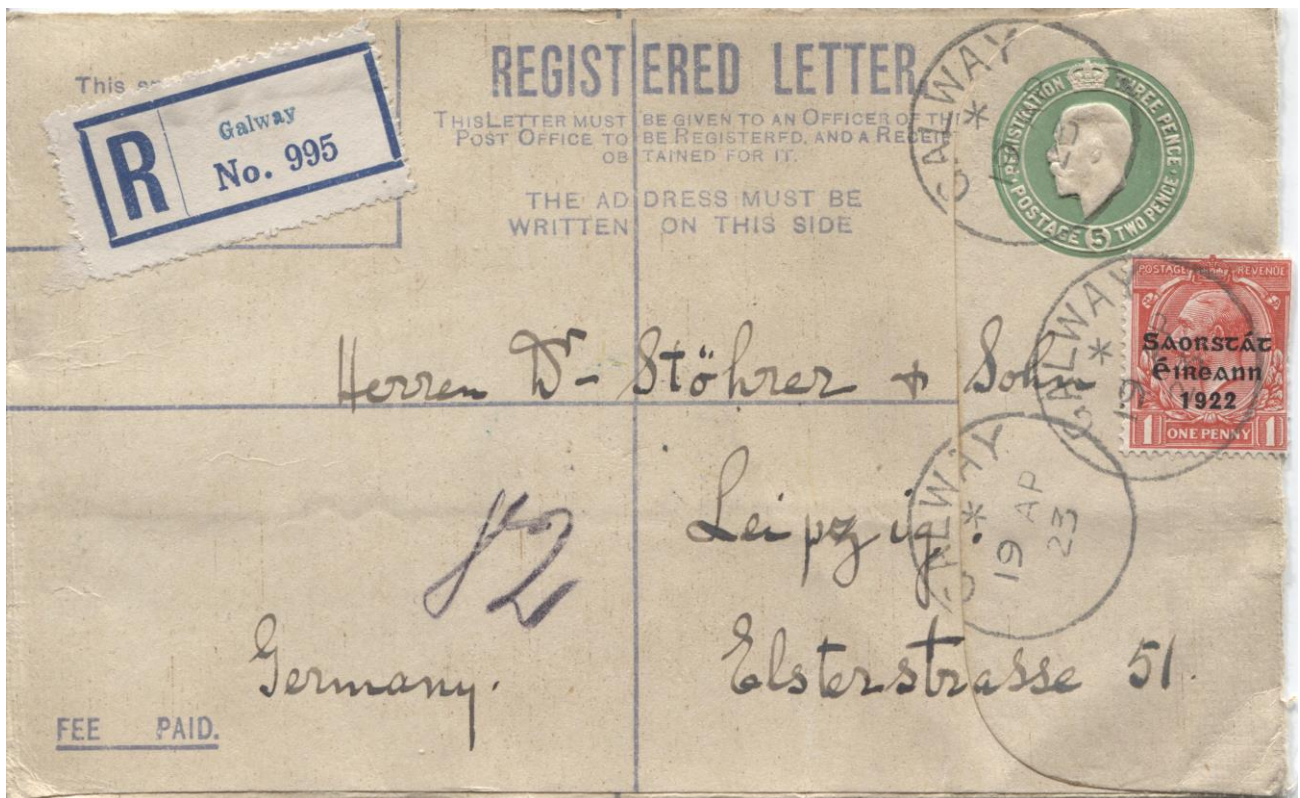 REGISTERED LETTER
THIS LETTER MUST BE GIVEN TO AN OFFICER OF TH
POST OFFICE TO BE REGISTERED, AND A RECEI
OBTAINED FOR IT.
THE ADDRESS MUST BE
WRITTEN ON THIS SIDE
This
R
Galway
No. 995
REGISTRATION THREE PENCE
POSTAGE 5 TWO PENCE
GALWAY
POSTAGE REVENUE
Saorstát
Éireann
1922
1 ONE PENNY 1
GALWAY
19
Herren Dr Stöhrer + Sohn
Leipzig.
GALWAY
19 AP
23
12
Elsterstrasse 51.
Germany.
FEE PAID.